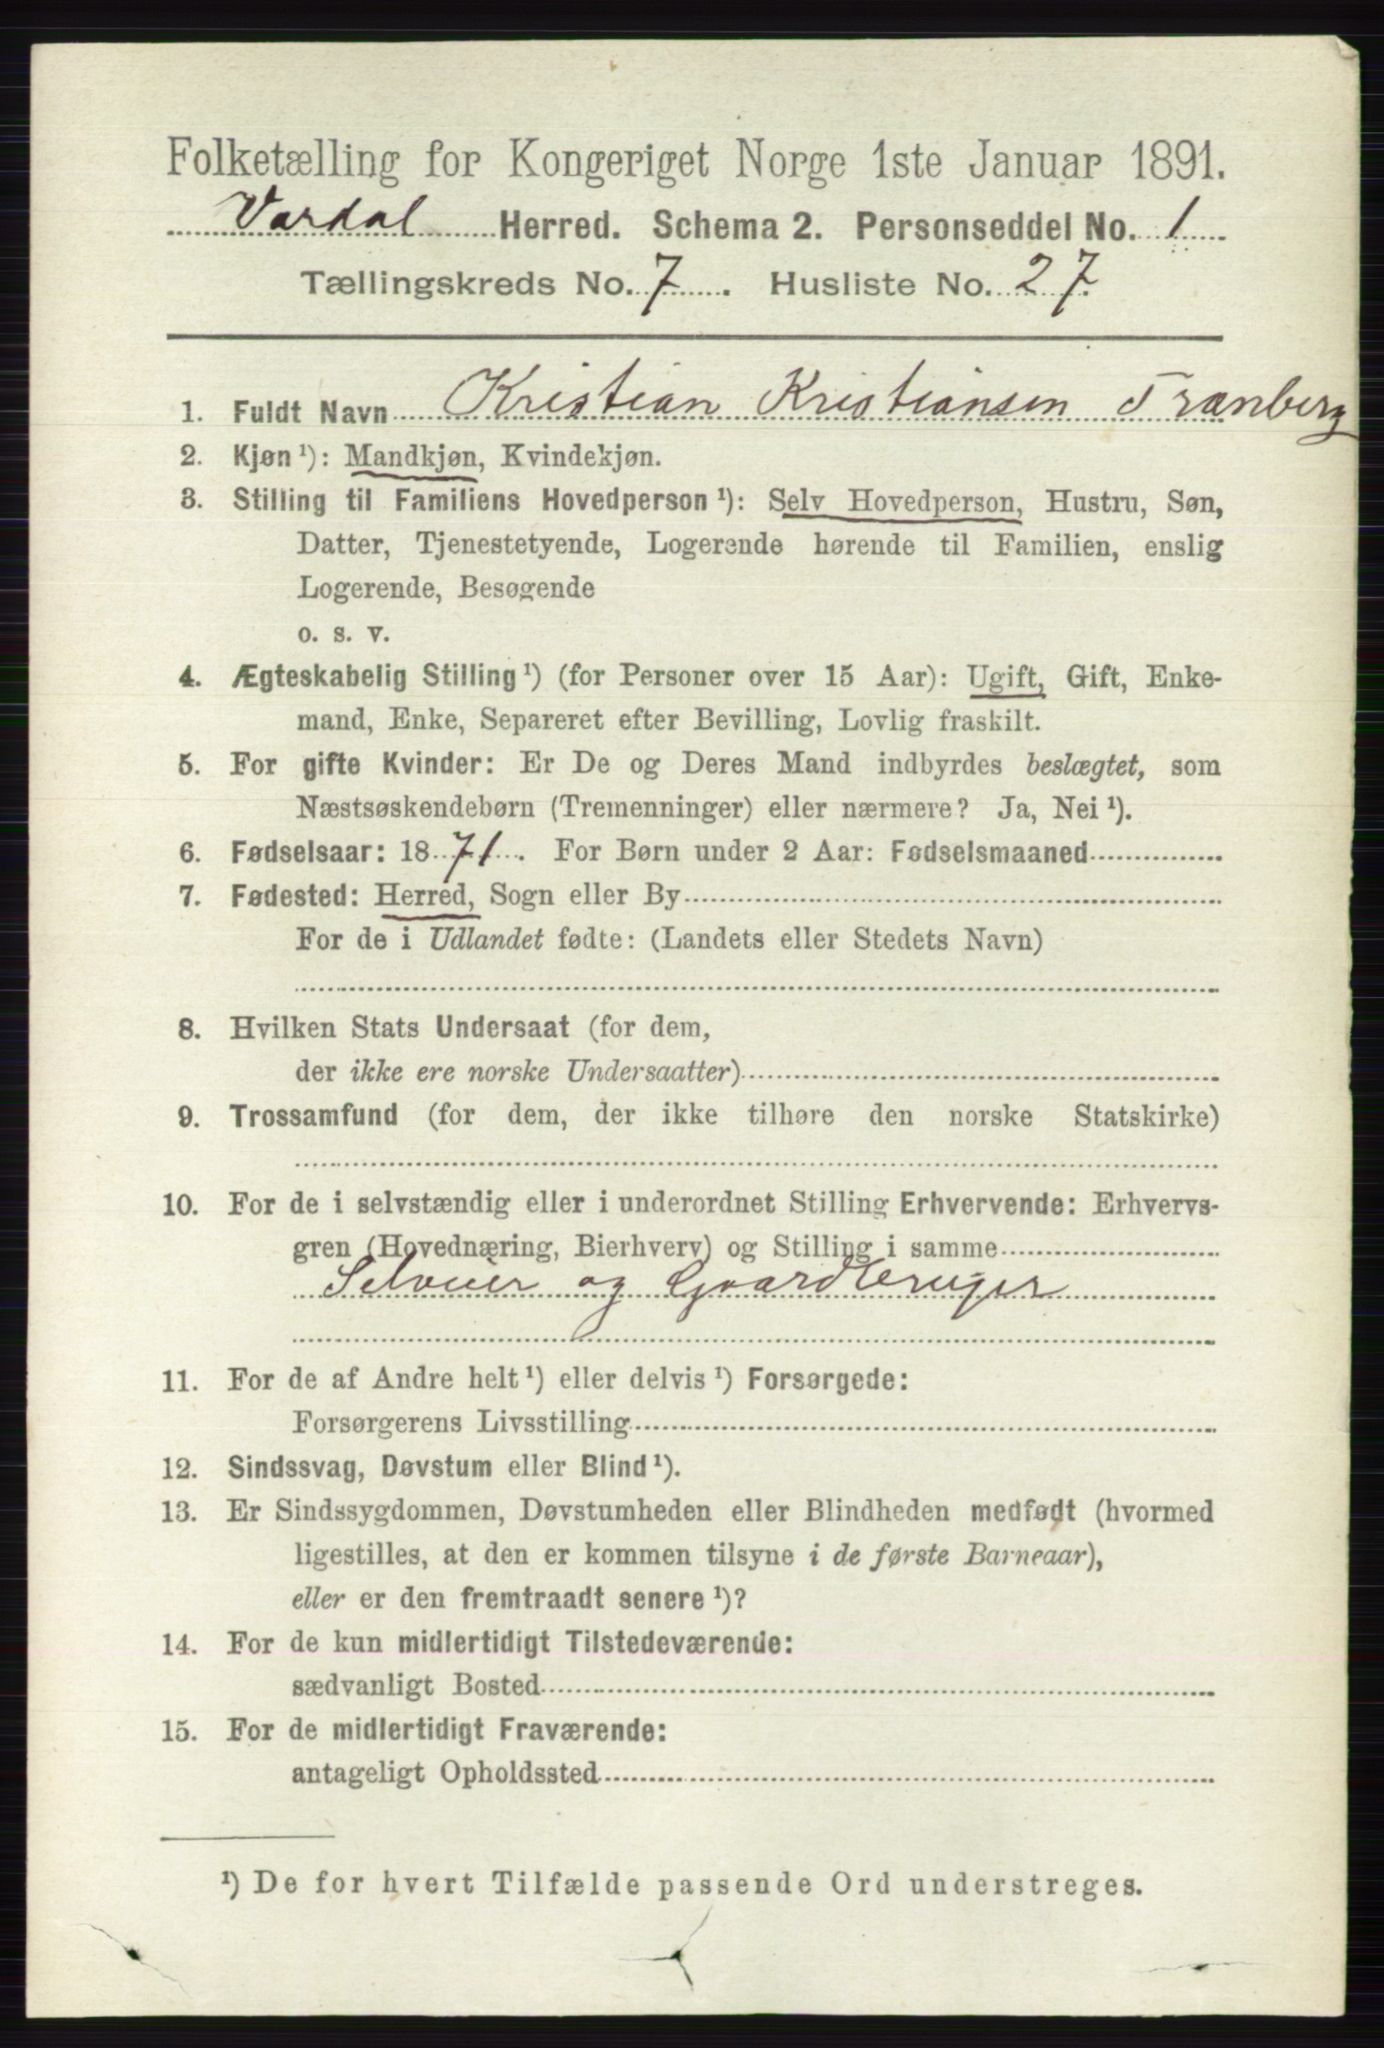 Folketælling for Kongeriget Norge 1ste Januar 1891.
Vardal Herred. Schema 2. Personseddel No. 1
Tællingskreds No. 7. Husliste No. 27.
1. Fuldt Navn Kristian Kristiansen Tranberg
2. Kjøn ¹): Mandkjøn, Kvindekjøn.
3. Stilling til Familiens Hovedperson ¹): Selv Hovedperson, Hustru, Søn,
Datter, Tjenestetyende, Logerende hørende til Familien, enslig
Logerende, Besøgende
o. s. v.
4. Ægteskabelig Stilling ¹) (for Personer over 15 Aar): Ugift, Gift, Enke-
mand, Enke, Separeret efter Bevilling, Lovlig fraskilt.
5. For gifte Kvinder: Er De og Deres Mand indbyrdes beslægtet, som
Næstsøskendebørn (Tremenninger) eller nærmere? Ja, Nei ¹).
6. Fødselsaar: 1871. For Børn under 2 Aar: Fødselsmaaned
7. Fødested: Herred, Sogn eller By
For de i Udlandet fødte: (Landets eller Stedets Navn)
8. Hvilken Stats Undersaat (for dem,
der ikke ere norske Undersaatter)
9. Trossamfund (for dem, der ikke tilhøre den norske Statskirke)
10. For de i selvstændig eller i underordnet Stilling Erhvervende: Erhvervs-
gren (Hovednæring, Bierhverv) og Stilling i samme
Selveier og Gaardbruger
11. For de af Andre helt ¹) eller delvis ¹) Forsørgede:
Forsørgerens Livsstilling
12. Sindssvag, Døvstum eller Blind ¹).
13. Er Sindssygdommen, Døvstumheden eller Blindheden medfødt (hvormed
ligestilles, at den er kommen tilsyne i de første Barneaar),
eller er den fremtraadt senere ¹)?
14. For de kun midlertidigt Tilstedeværende:
sædvanligt Bosted
15. For de midlertidigt Fraværende:
antageligt Opholdssted
¹) De for hvert Tilfælde passende Ord understreges.